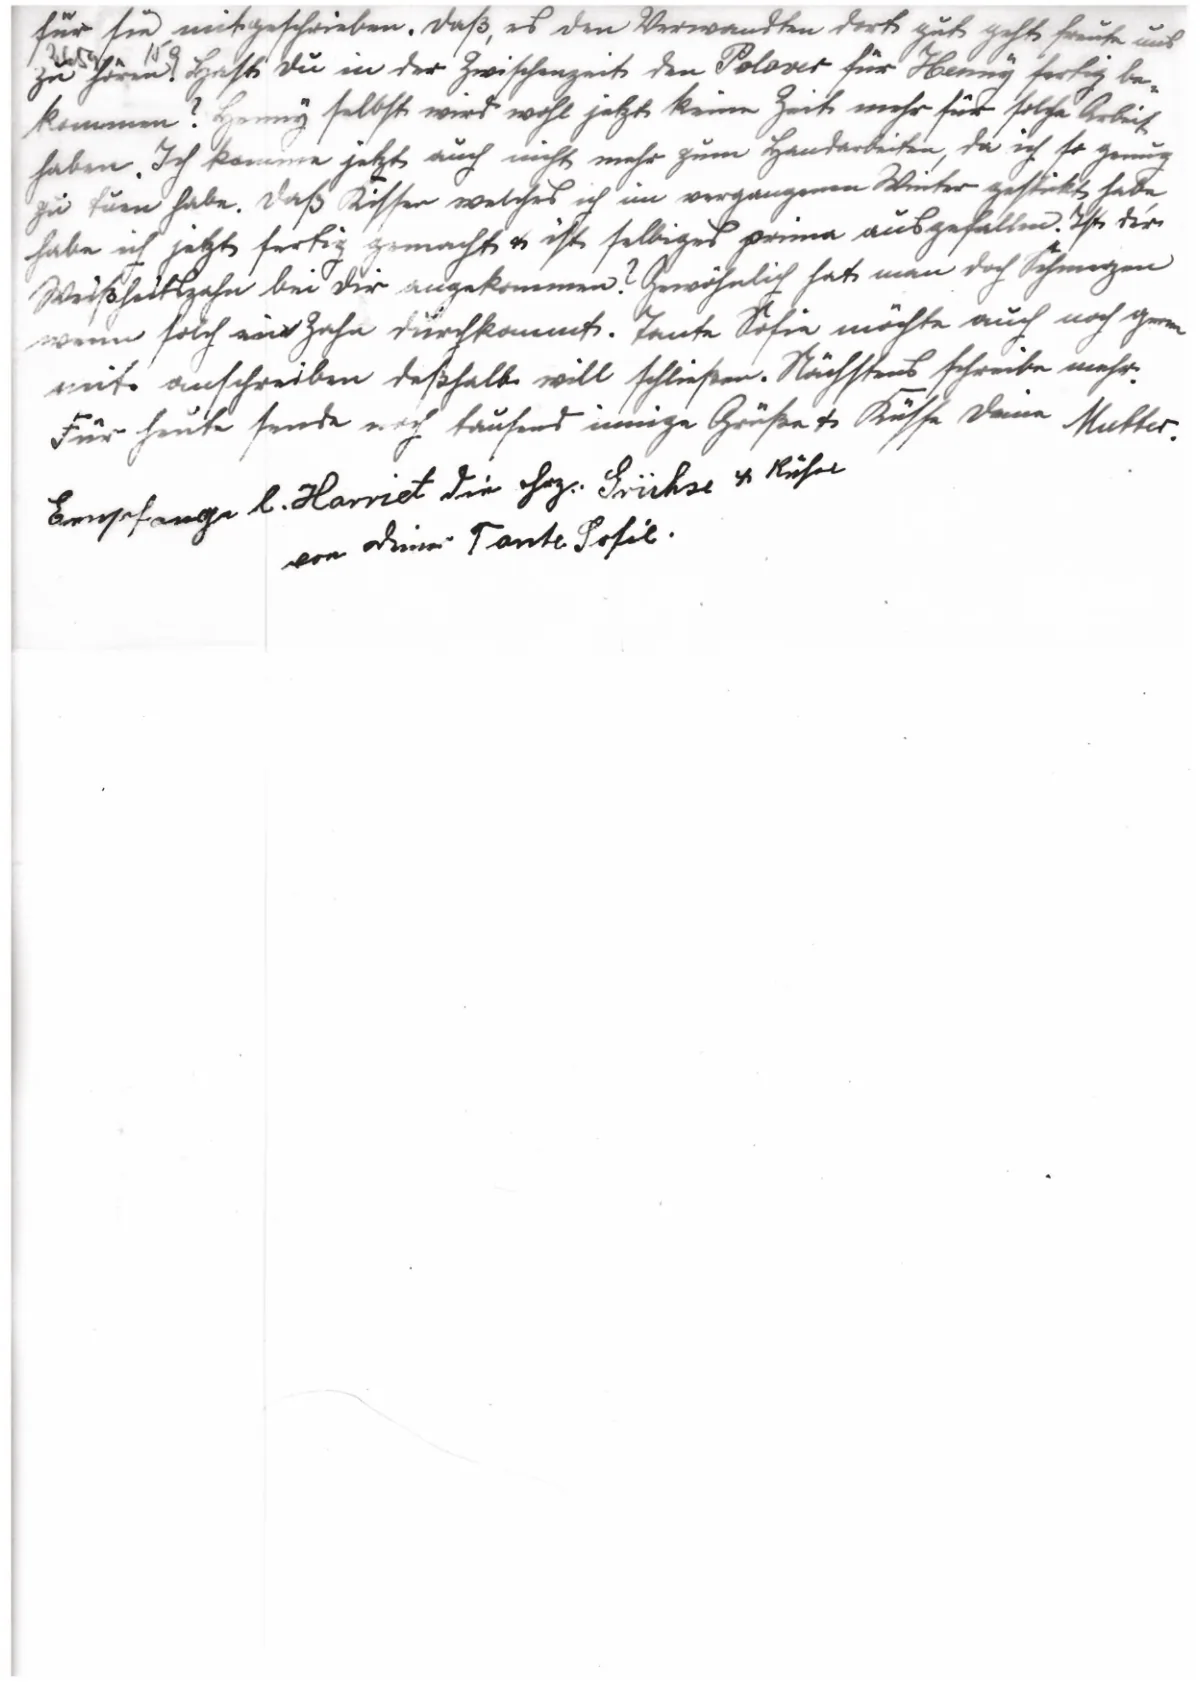 für sie mitgeschrieben. Daß, es den Verwandten dort gut geht freute uns
zu hören. Hast Du in der Zwischenzeit den Polover für Henny fertig be-
kommen? Henny selbst wird wohl jetzt keine Zeit mehr für solche Arbeit
haben. Ich komme jetzt auch nicht mehr zum Handarbeiten, da ich so genug
zu tuen habe. Daß Kissen welches ich im vergangenen Winter gestickt habe
habe ich jetzt fertig gemacht & ist selbiges prima ausgefallen. Ist der
Weißheitszahn bei Dir angekommen? Gewöhnlich hat man doch Schmerzen
wenn solch ein Zahn durchkommt. Tante Sofie möchte auch noch gerne
mit anschreiben deßhalb will schließen. Nächstens schreibe mehr.
Für heute sende noch tausend innige Grüße & Küsse Deine Mutter.
Empfange l. Harriet die hrz. Grühse & Kühse
von deiner Tante Sofie.